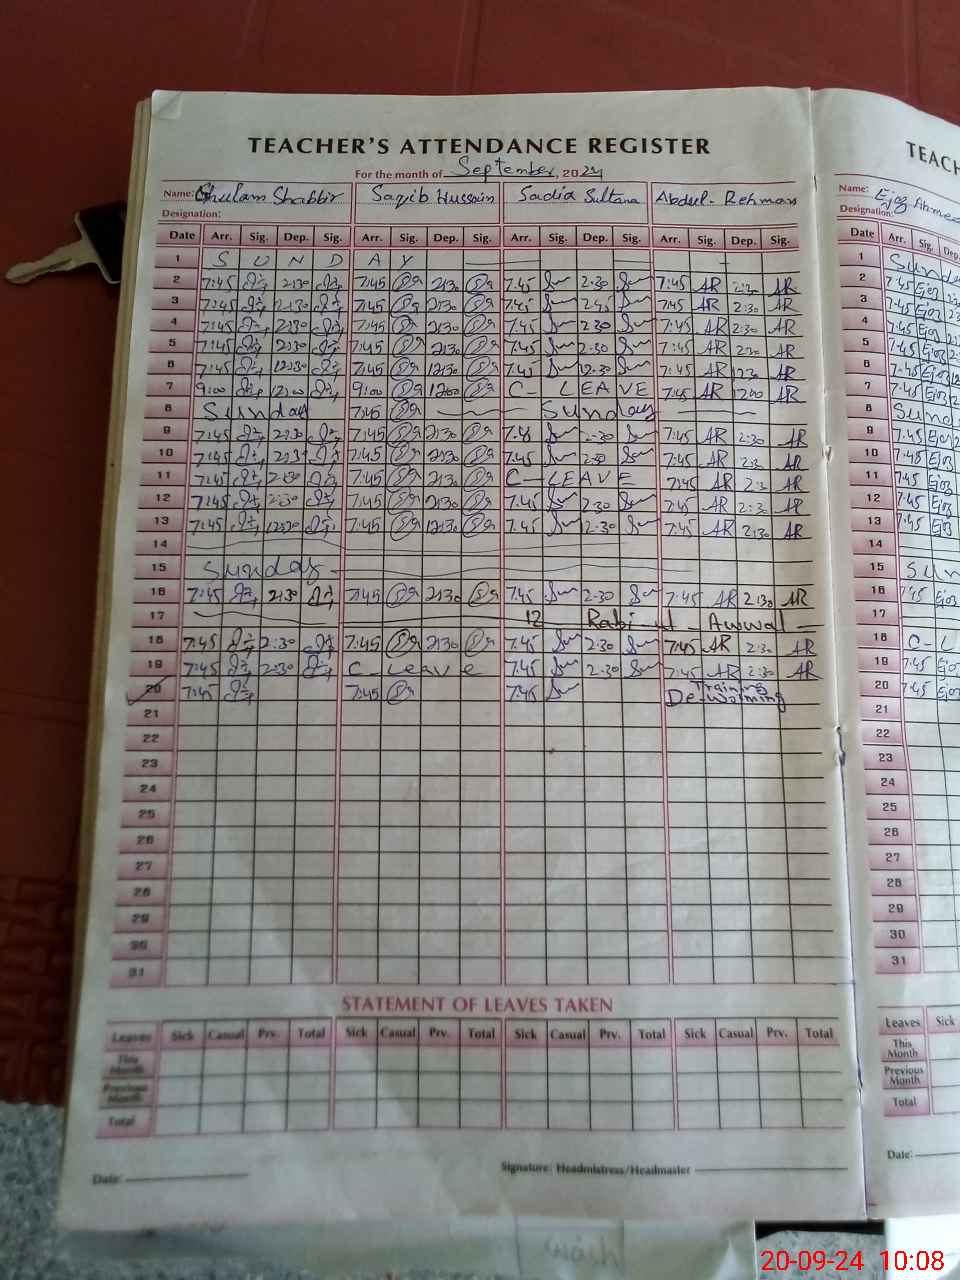 TEACHER'S ATTENDANCE REGISTER
For the month of September, 2024
Name: Ghulam Shabbir Saqib Hussain Sadia Sultana Abdul-Rehman
Designation:
Date Arr. Sig. Dep. Sig. Arr. Sig. Dep. Sig. Arr. Sig. Dep. Sig. Arr. Sig. Dep. Sig.
1 S U N D A Y
2 7:45 2:30 7:45 2:30 7:45 2:30 7:45 AR 2:30 AR
3 7:45 2:30 7:45 2:30 7:45 2:45 7:45 AR 2:30 AR
4 7:45 2:30 7:45 2:30 7:45 2:30 7:45 AR 2:30 AR
5 7:45 2:30 7:45 2:30 7:45 2:30 7:45 AR 2:30 AR
6 7:45 12:30 7:45 12:30 7:45 12:30 7:45 AR 12:30 AR
7 9:00 12:00 9:00 12:00 C-LEAVE 7:45 AR 12:00 AR
8 Sunday 7:45 Sunday
9 7:45 2:30 7:45 2:30 7:45 2:30 7:45 AR 2:30 AR
10 7:45 2:30 7:45 2:30 7:45 2:30 7:45 AR 2:30 AR
11 7:45 2:30 7:45 2:30 C-LEAVE 7:45 AR 2:30 AR
12 7:45 2:30 7:45 2:30 7:45 2:30 7:45 AR 2:30 AR
13 7:45 12:30 7:45 12:30 7:45 2:30 7:45 AR 2:30 AR
14
15 Sunday
16 7:45 2:30 7:45 2:30 7:45 2:30 7:45 AR 2:30 AR
17 12 Rabi-ul-Awwal
18 7:45 2:30 7:45 2:30 7:45 2:30 7:45 AR 2:30 AR
19 7:45 2:30 C-Leave 7:45 2:30 7:45 AR 2:30 AR
20 7:45 7:45 7:45 Training De-worming
21
22
23
24
25
26
27
28
29
30
31
STATEMENT OF LEAVES TAKEN
Leaves Sick Casual Prv. Total Sick Casual Prv. Total Sick Casual Prv. Total Sick Casual Prv. Total
This Month
Previous Month
Total
Date:
Signature: Headmistress/Headmaster
TEACH
Name: Ejaz Ahmed
Designation:
Date Arr. Sig. Dep.
1 Sunda
2 7:45 Ejaz
3 7:45 Ejaz
4 7:45 Ejaz
5 7:45 Ejaz
6 7:45 Ejaz
7 7:45 Ejaz
8 Sund
9 7:45 Ejaz
10 7:45 Ejaz
11 7:45 Ejaz
12 7:45 Ejaz
13 7:45 Ejaz
14
15 Sun
16 7:45 Ejaz
17
18 C-L
19 7:45 Ejaz
20 7:45 Ejaz
21
22
23
24
25
26
27
28
29
30
31
Leaves Sick
This Month
Previous Month
Total
Date:
20-09-24 10:08